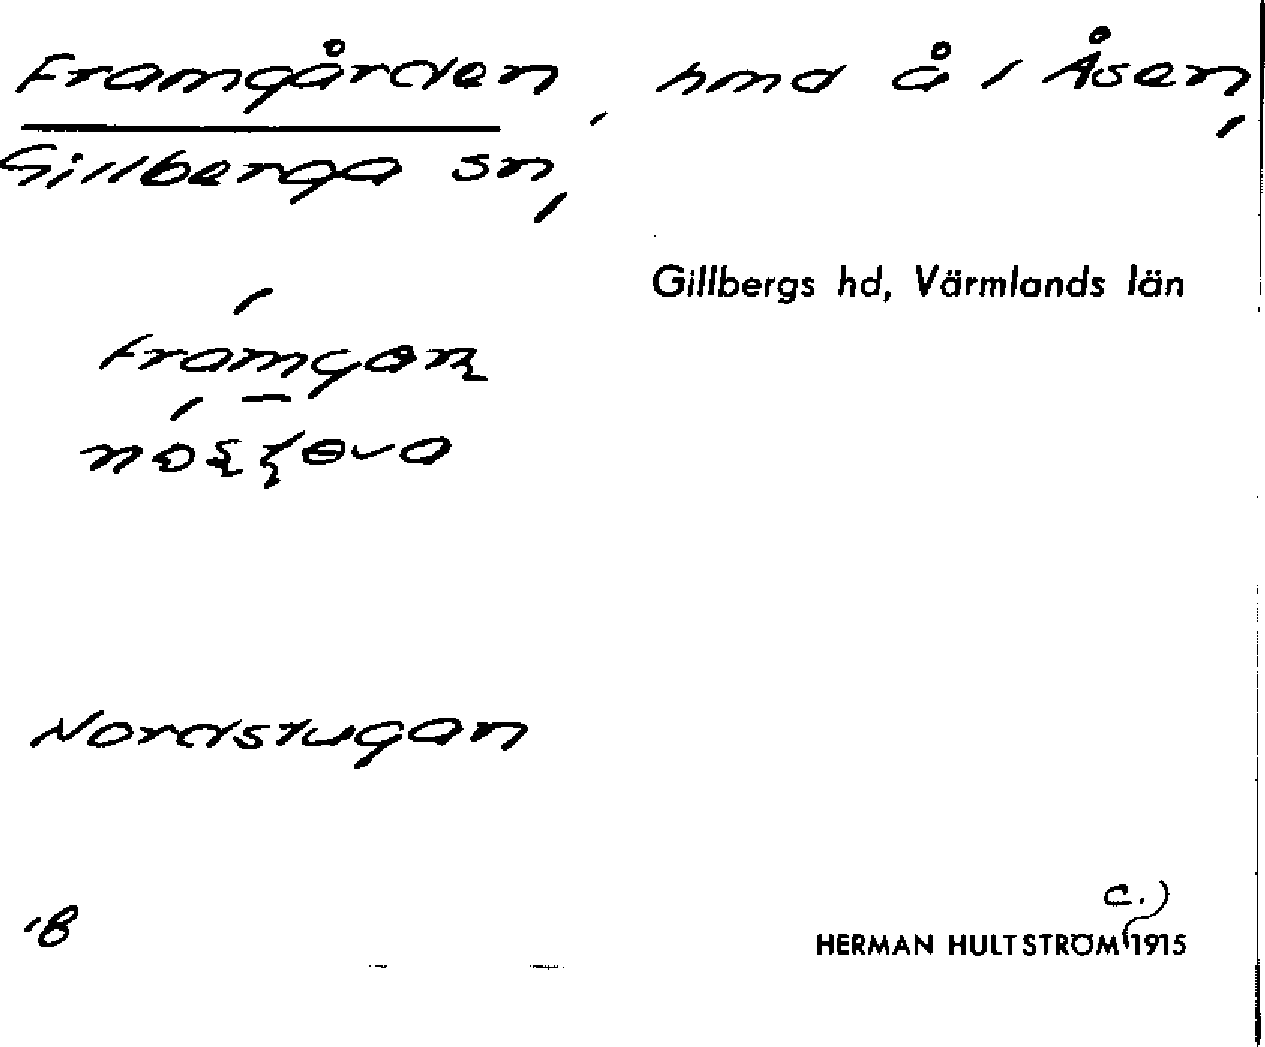 Framgården, hmd å 1 Åsen,
Gillberga sn,
Gillbergs hd, Värmlands län
Nordstugan
18
c.)
HERMAN HULTSTRÖM 1915